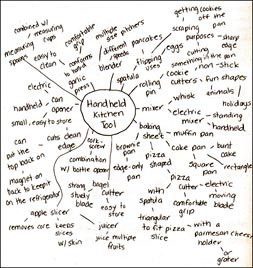 combined w/
measuring cup
measuring
spoons
easy to
clean
comfortable
grip
conforms
to
hand
garlic
press
multiple size pitchers
different
speeds
blender
pancakes
flipping
uses
spatula
eggs
getting cookies
off the
pan
scraping
purposes
sharp
edge
something
non stick
rolling
pin
cookie
cutters
fun shapes
animals
holidays
Handheld
Kitchen
Tool
electric
handheld
small, easy to store
can
opener
can
put the
top back on
cuts clean
edge
magnet on
back to keep it
on the refrigerator
corkscrew
combination
w/ bottle opener
mixer
whisk
electric
standing
handheld
baking
sheet
muffin pan
brownie
pan
edge-only
shaped
pizza
pan
cake pan
bunt
cake
square
pan
rectangle
strong
sturdy
blade
bagel
cutter
easy to
store
apple slicer
removes core
keeps
slices
w/ skin
juicer
juice multiple
fruits
pizza
cutter
electric
moving
blade
comfortable
grip
with
spatula
triangular
to fit pizza
slice
with a
parmesan cheese
holder
or
grater